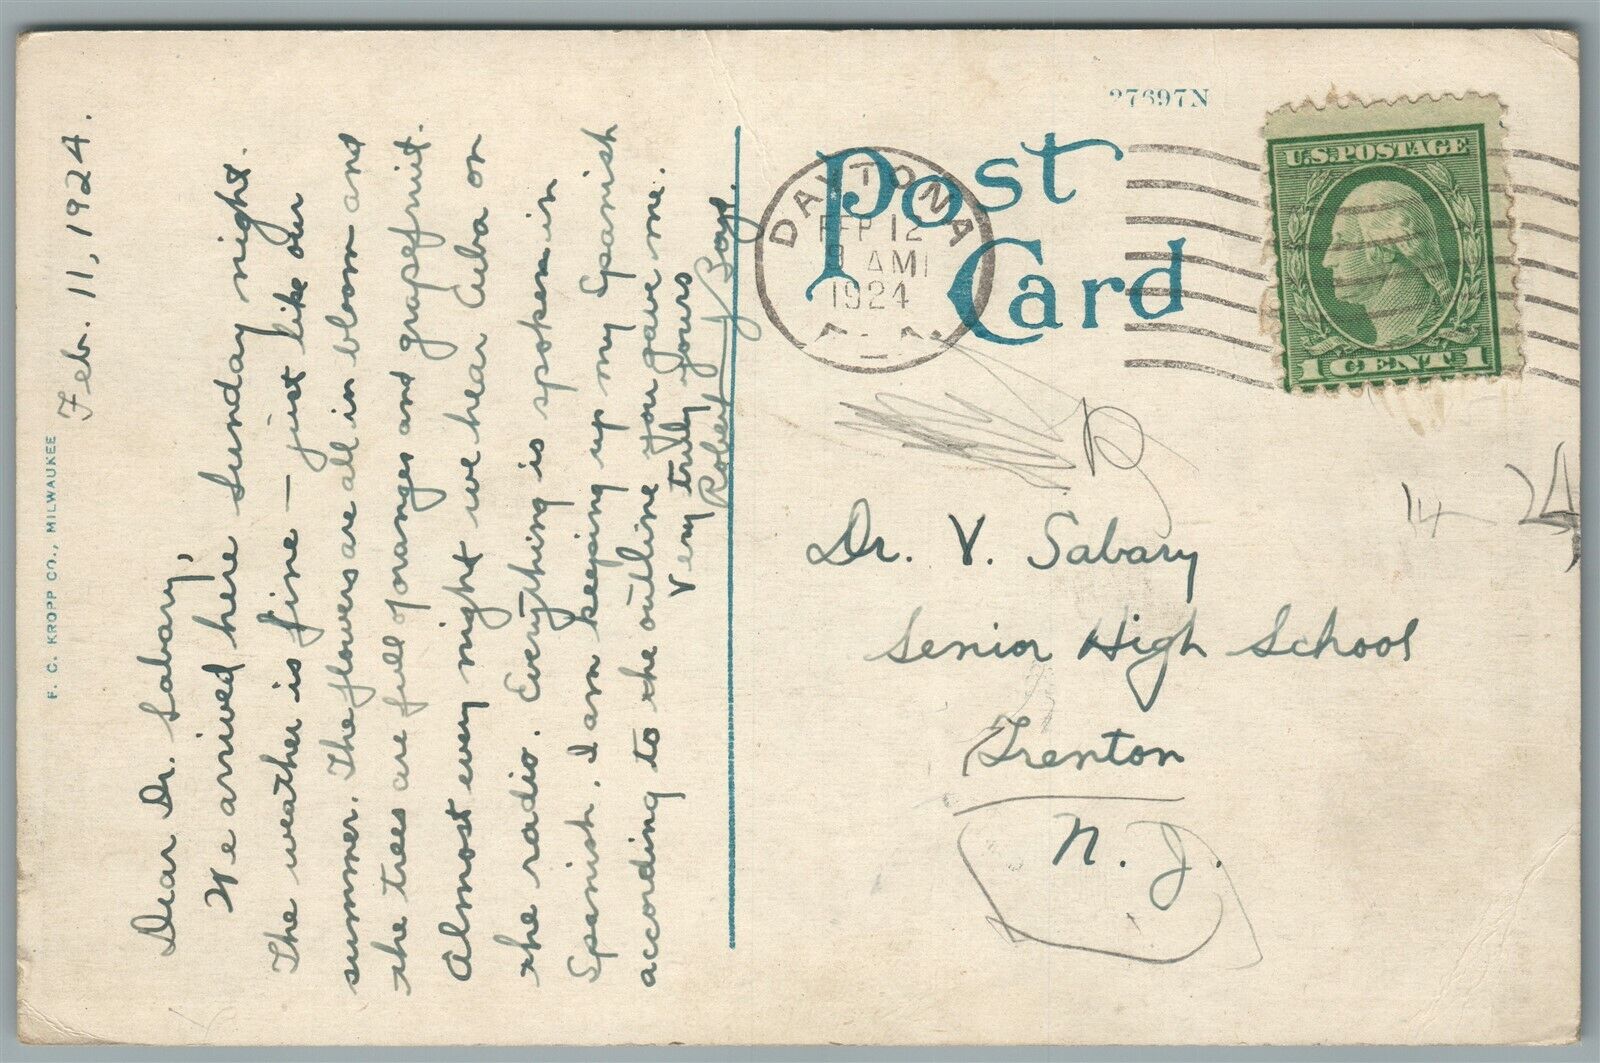 F. C. KROPP CO., MILWAUKEE
Feb. 11, 1924.
Dear Dr. Sabary,
We arrived here Sunday night.
The weather is fine — just like our
summer. The flowers are all in bloom and
the trees are full of oranges and grapefruit.
Almost every night we hear Cuba on
the radio. Everything is spoken in
Spanish. I am keeping up my Spanish
according to the outline you gave me.
Very truly yours
Robert
27697N
Post
Card
DAYTONA
FEB 12
AM
1924
U.S. POSTAGE
1 CENT 1
14 24
Dr. V. Sabary
Senior High School
Trenton
N. J.